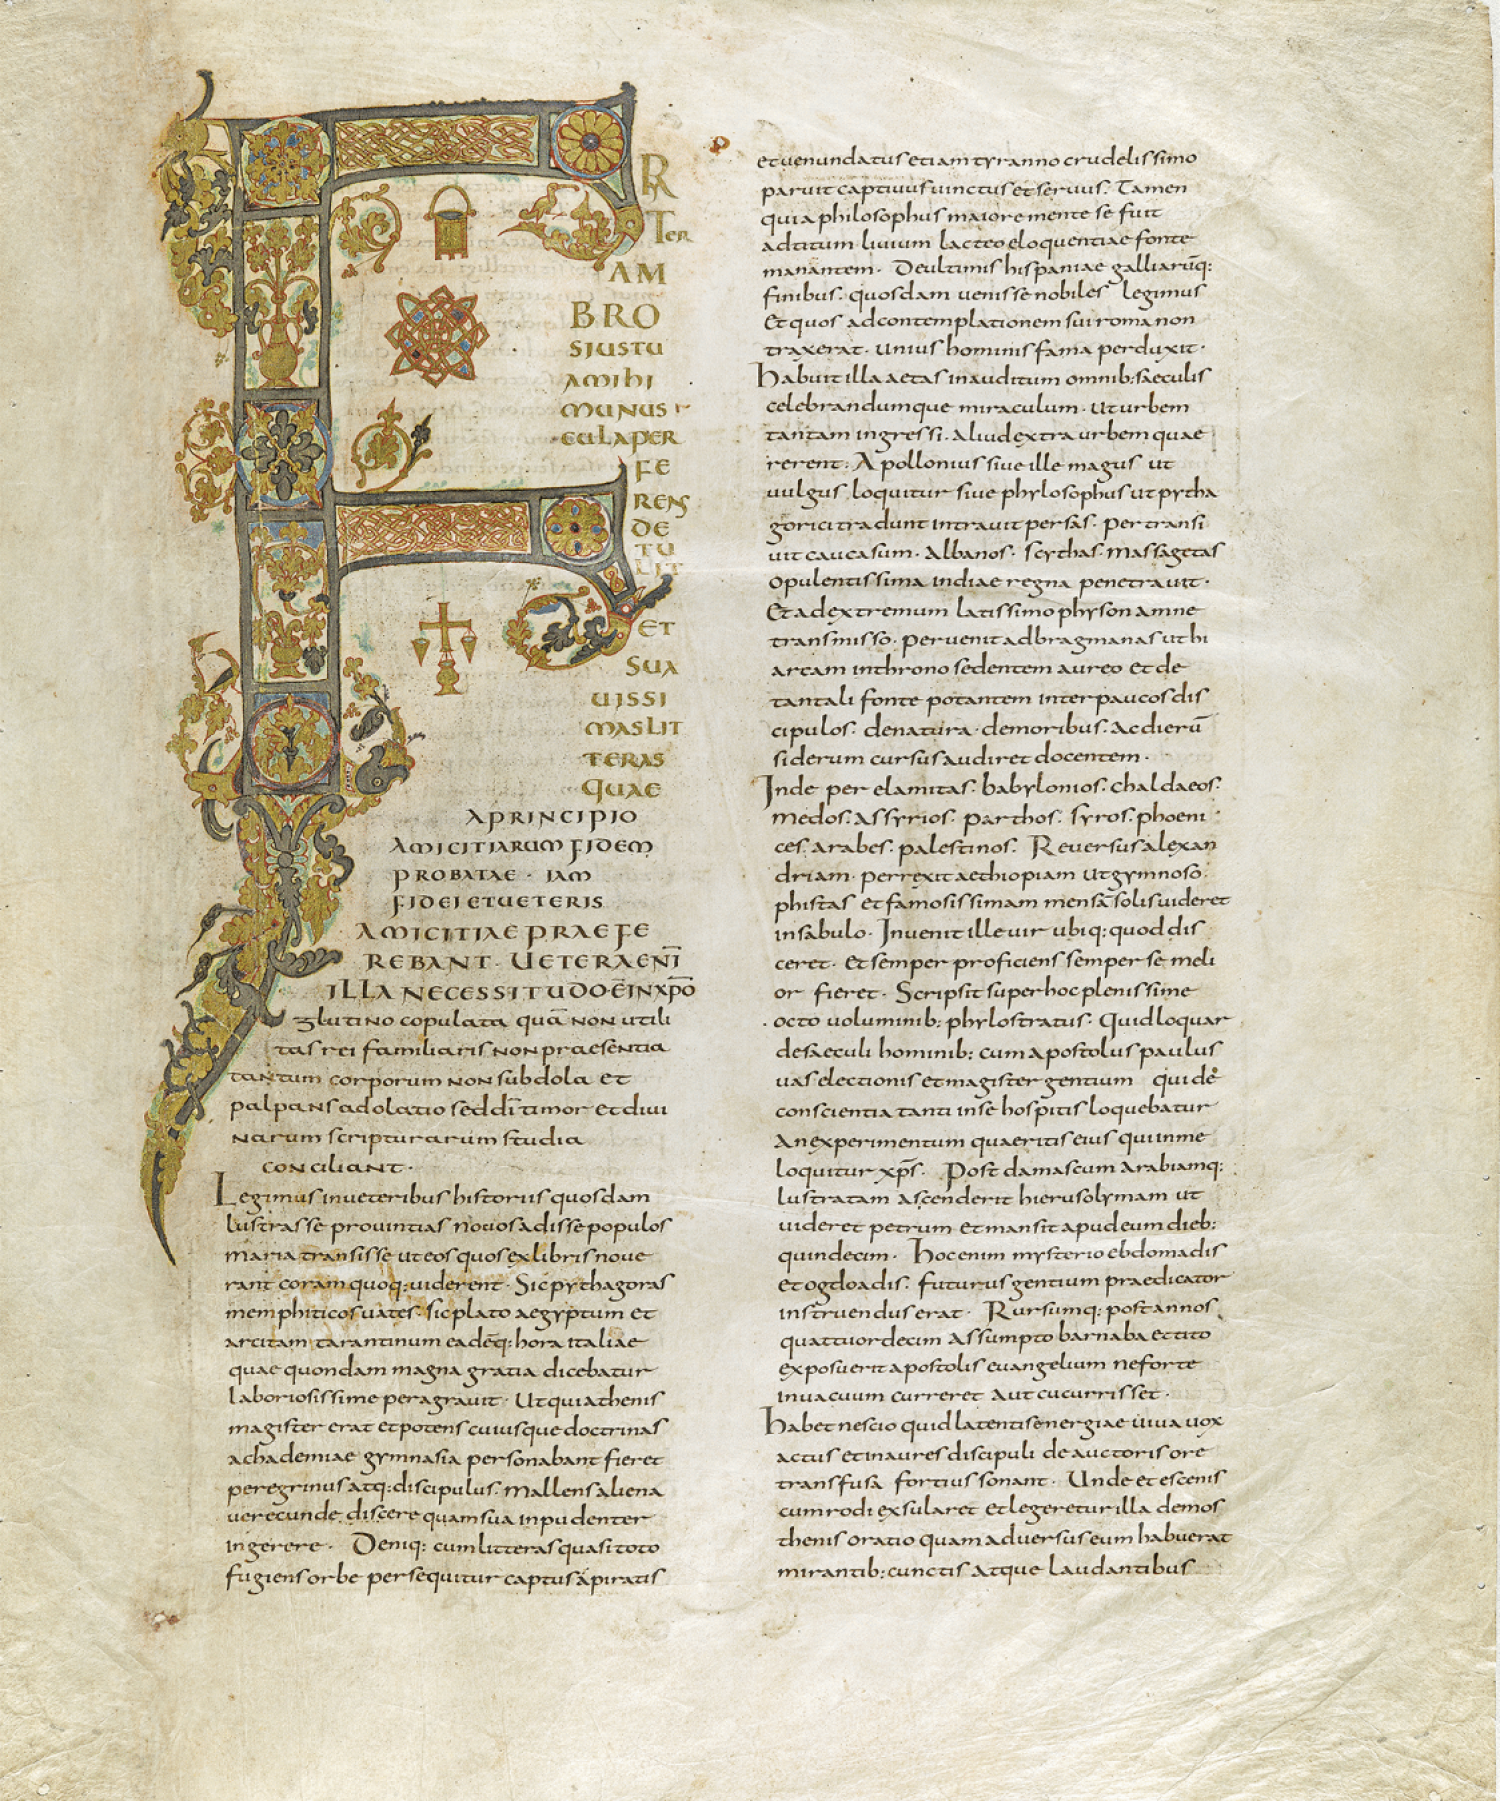 F
R
Ter
AM
BRO
SJUSTU
AMIHI
MUNUS
CULAPER
FE
RENS
DE
TU
LIT
ET
SUA
UISSI
MASLIT
TERAS
QUAE
APRINCIPIO
AMICITIARUM FIDEM
PROBATAE · IAM
FIDEI ETUETERIS
AMICITIAE PRAEFE
REBANT · UETERAENĪ
ILLA NECESSITUDO Ē INXP̄O
glutino copulata quā non utili
tas rei familiaris non praesentia
tantum corporum non subdola et
palpans adolatio sed dī timor et diui
narum scripturarum studia
conciliant ·
Legimus in ueteribus historiis quosdam
lustrasse prouintias nouos adisse populos
maria transisse ut eos quos ex libris noue
rant coram quoq: uiderent · Sic pythagoras
memphiticos uates · sic plato aegyptum et
arcitam tarantinum eadēq: hora italiae
quae quondam magna gratia dicebatur
laboriosissime peragrauit · Ut qui athenis
magister erat et potens cuiusque doctrinas
achademiae gymnasia personabant fieret
peregrinus atq: discipulus · mallens aliena
uerecunde discere quam sua inpudenter
ingerere · Deniq: cum litteras quasi toto
fugiens orbe persequitur captus a piratis
et uenundatus etiam tyranno crudelissimo
paruit captiuus uinctus et seruus · Tamen
quia philosophus maiore mente se fuit
ad titum liuium lacteo eloquentiae fonte
manantem · De ultimis hispaniae galliarūq:
finibus · quosdam uenisse nobiles legimus
Et quos ad contemplationem sui roma non
traxerat · unius hominis fama perduxit ·
habuit illa aetas inauditum omnib: saeculis
celebrandumque miraculum · ut urbem
tantam ingressi · aliud extra urbem quae
rerent · Apollonius siue ille magus ut
uulgus loquitur siue phylosophus ut pytha
gorici tradunt intrauit persas · pertransi
uit caucasum · albanos · scythas · massagetas
opulentissima indiae regna penetrauit ·
Et ad extremum latissimo physon amne
transmisso · peruenit ad bragmanas ut hi
arcam in throno sedentem aureo et de
tantali fonte potantem inter paucos dis
cipulos · de natura · de moribus · ac dierū
siderum cursus audiret docentem ·
Inde per elamitas · babylonios · chaldaeos ·
medos · assyrios · parthos · syros · phoeni
ces · arabes · palestinos · Reuersus alexan
driam · perrexit aethiopiam ut gymnoso
phistas et famosissimam mensā solis uideret
in sabulo · Inuenit ille uir ubiq: quod dis
ceret · et semper proficiens semper se meli
or fieret · Scripsit super hoc plenissime
· octo uoluminib: phylostratus · Quid loquar
de saeculi hominib: cum apostolus paulus
uas electionis et magister gentium qui de
conscientia tanti in se hospitis loquebatur
An experimentum quaeritis eius qui in me
loquitur xp̄s · Post damascum arabiamq:
lustratam ascenderit hierusolymam ut
uideret petrum et mansit apud eum dieb:
quindecim · hoc enim mysterio ebdomadis
et ogdoadis · futurus gentium praedicator
instruendus erat · Rursumq: post annos
quattuordecim assumpto barnaba et tito
exposuerit apostolis euangelium ne forte
in uacuum curreret aut cucurrisset ·
habet nescio quid latentis energiae uiua uox
actus et in aures discipuli de auctoris ore
transfusa fortius sonant · Unde et escenis
cum rodi exsularet et legeretur illa demos
thenis oratio quam aduersus eum habuerat
mirantib: cunctis atque laudantibus